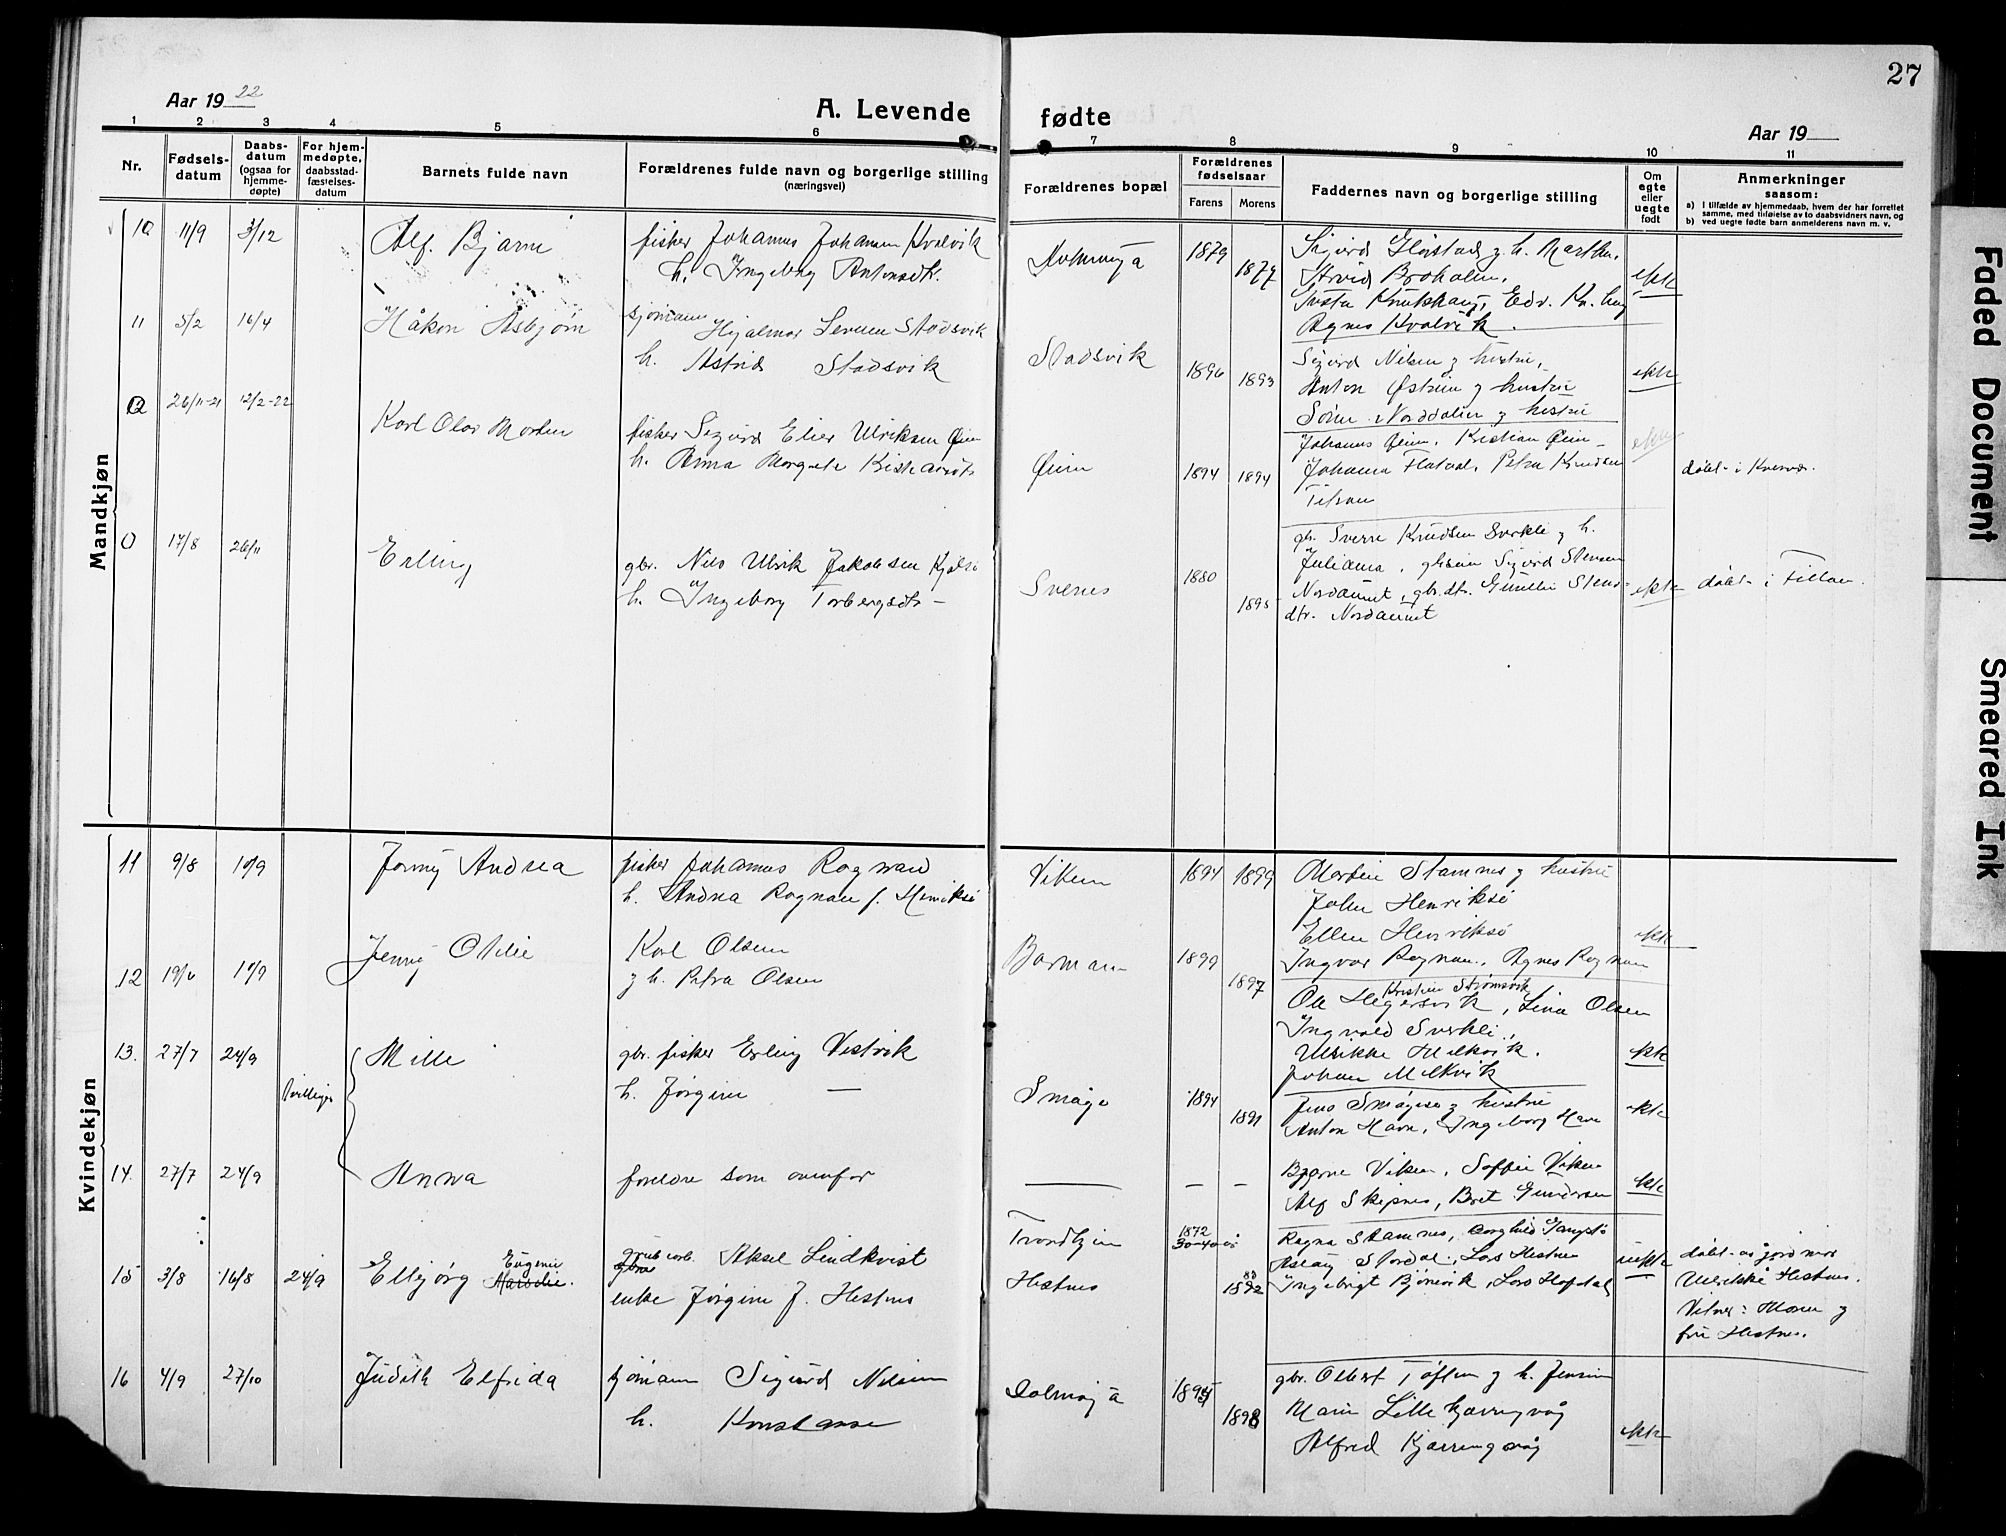 27
Aar 1922
A. Levende fødte
Aar 19
1 2 3 4 5 6 7 8 9 10 11
Nr.
Fødsels-
datum
Daabs-
datum
(ogsaa for
hjemme-
døpte)
For hjem-
medøpte,
daabsstad-
fæstelses-
datum
Barnets fulde navn
Forældrenes fulde navn og borgerlige stilling
(næringsvei)
Forældrenes bopæl
Forældrenes
fødselsaar
Farens Morens
Faddernes navn og borgerlige stilling
Om
egte
eller
uegte
født
Anmerkninger
saasom:
a) I tilfælde av hjemmedaab, hvem der har forrettet
samme, med tilføielse av to daabsvidners navn, og
b) ved uegte født barn anmelderens navn m. v.
Mandkjøn
10 11/9 3/12 Alf Bjarne
fisker Johannes Johansen Kvalvik
h. Ingeborg Antonsdtr.
1879 1879
Sigurd Gløstad og h. Martha,
Arvid Broholm,
Agnes Kvalvik.
ekte
11 5/2 16/4 Håkon Asbjørn
sjømann Hjalmar Stadsvik
h. Astrid Stadsvik
Stadsvik 1896 1893
Sigurd Nilsen og hustru,
Anton Østrem og hustru
Norddalen og hustru
ekte
12 26/11-21 12/2-22 Karl Olav Morten
fisker Sigurd Elier Ulriksen Øien
h. Anna Margrete Kristiansdtr.
Øien 1894 1894
Johannes Øien, Kristian Øien
Johanna Flatval, Petra Knudsen
Titran
ekte
døbt i Kvenvær.
0 17/8 26/11 Erling
gbr. Nils Ulrik Jakobsen
h. Ingeborg Torbergsdtr
Svenes 1880 1895
gbr. Sverre Knudsen Svekle og h.
Juliana, Sigurd Stensen
Nordaunet, gbr.dtr. Gunelle Stens-
dtr. Nordaunet
ekte
døbt i Fillan.
Kvindekjøn
11 9/8 10/9 Jenny Andrea
fisker Johannes Rognan
h. Andrea Rognan f. Henriksø
Viken 1894 1899
Martin Stamnes og hustru
John Henriksø
Ellen Henriksø
Ingvar Rognan, Agnes Rognan
ekte
12 19/6 10/9 Jenny Otilie
Karl Olsen
og h. Petra Olsen
Borman 1899 1897
Kristine Strømsvik
Ole Hegersvik, Lina Olsen
Ingvald Svekli,
Ulrikke Melkvik.
Johan Melkvik
ekte
13. 27/7 24/9 Tvillinger Mille
gbr. fisker Erling Vestvik
h. Jørgine —
Smage 1894 1891
Jens Smågesø og hustru
Anton Havn, Ingeborg Havn
ekte
14. 27/7 24/9 Anna
foreldre som ovenfor
— — —
Bjarne Viken, Soffie Viken
Alf Skipnes, Beret Gundersen
ekte
15 3/8 16/8 24/9 Ellbjørg Eugenie
grubearb. Aksel Lindkvist
enke Jørgine J. Hestnes
Trondhjem
Hestnes
1872
30-40 år
1892
Ragna Stamnes, Borghild
Aslaug Stordal, Lars Hestnes
Ingebrigt Bjørnvik, Lars Hofstad
uekte
døbt av jordmor
Ulrikke Hestnes.
Vitner: Moren og
fru Hestnes.
16 4/9 27/10 Judith Elfrida
sjømann Sigurd Nilsen
h. Konstanse
Dolmøya 1895 1898
gbr. Olbert Tøften og h. Jensine
Marie Lille kjærringvåg
Alfred Kjærringvåg
ekte
Faded Document
Smeared Ink